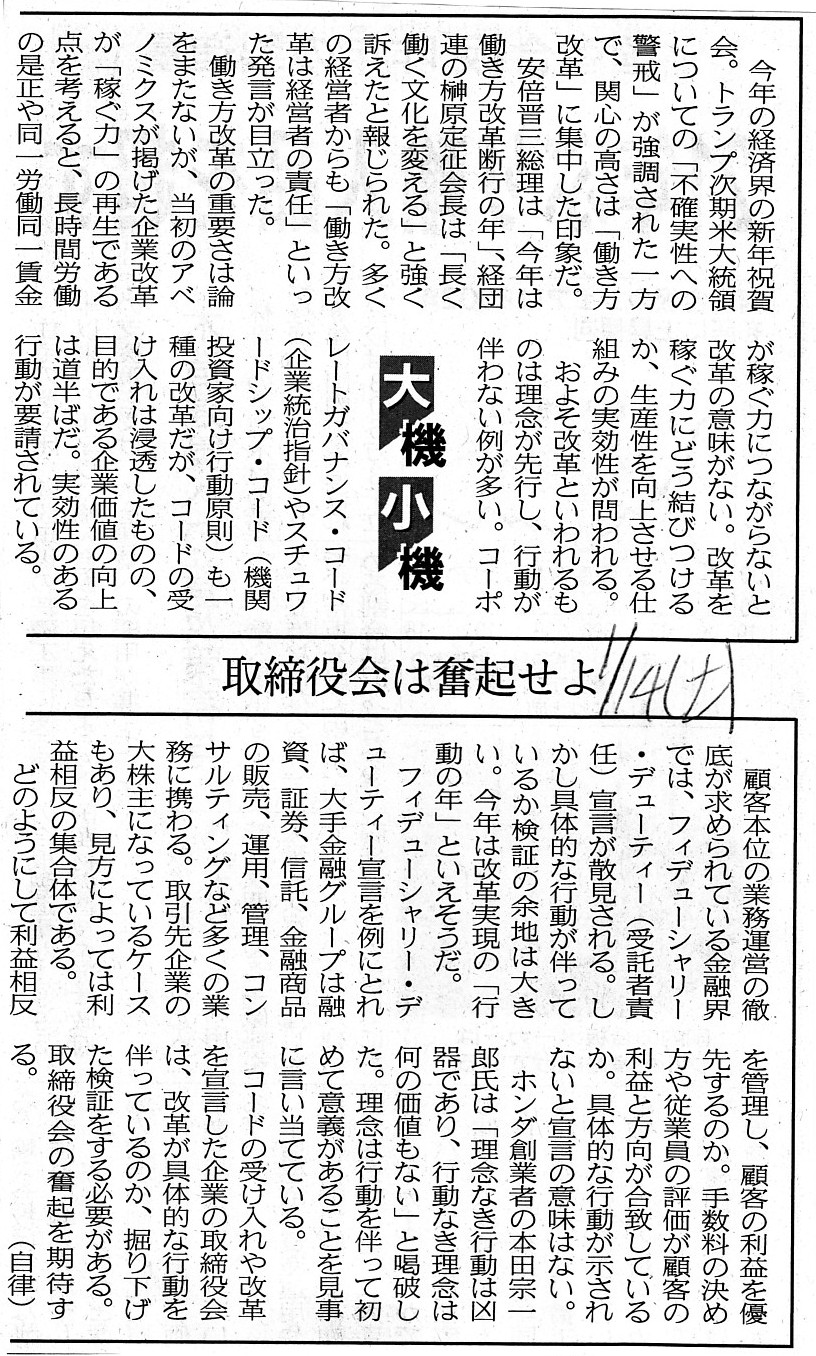 取締役会は奮起せよ
1/14(土)
大機小機
今年の経済界の新年祝賀
会。トランプ次期米大統領
についての「不確実性への
警戒」が強調された一方
で、関心の高さは「働き方
改革」に集中した印象だ。
安倍晋三総理は「今年は
働き方改革断行の年」、経団
連の榊原定征会長は「長く
働く文化を変える」と強く
訴えたと報じられた。多く
の経営者からも「働き方改
革は経営者の責任」といっ
た発言が目立った。
働き方改革の重要さは論
をまたないが、当初のアベ
ノミクスが掲げた企業改革
が「稼ぐ力」の再生である
点を考えると、長時間労働
の是正や同一労働同一賃金
が稼ぐ力につながらないと
改革の意味がない。改革を
稼ぐ力にどう結びつける
か、生産性を向上させる仕
組みの実効性が問われる。
およそ改革といわれるも
のは理念が先行し、行動が
伴わない例が多い。コーポ
レートガバナンス・コード
(企業統治指針)やスチュワ
ードシップ・コード(機関
投資家向け行動原則)も一
種の改革だが、コードの受
け入れは浸透したものの、
目的である企業価値の向上
は道半ばだ。実効性のある
行動が要請されている。
顧客本位の業務運営の徹
底が求められている金融界
では、フィデューシャリー
・デューティー(受託者責
任)宣言が散見される。し
かし具体的な行動が伴って
いるか検証の余地は大き
い。今年は改革実現の「行
動の年」といえそうだ。
フィデューシャリー・デ
ューティー宣言を例にとれ
ば、大手金融グループは融
資、証券、信託、金融商品
の販売、運用、管理、コン
サルティングなど多くの業
務に携わる。取引先企業の
大株主になっているケース
もあり、見方によっては利
益相反の集合体である。
どのようにして利益相反
を管理し、顧客の利益を優
先するのか。手数料の決め
方や従業員の評価が顧客の
利益と方向が合致している
か。具体的な行動が示され
ないと宣言の意味はない。
ホンダ創業者の本田宗一
郎氏は「理念なき行動は凶
器であり、行動なき理念は
何の価値もない」と喝破し
た。理念は行動を伴って初
めて意義があることを見事
に言い当てている。
コードの受け入れや改革
を宣言した企業の取締役会
は、改革が具体的な行動を
伴っているのか、掘り下げ
た検証をする必要がある。
取締役会の奮起を期待す
る。
(自律)